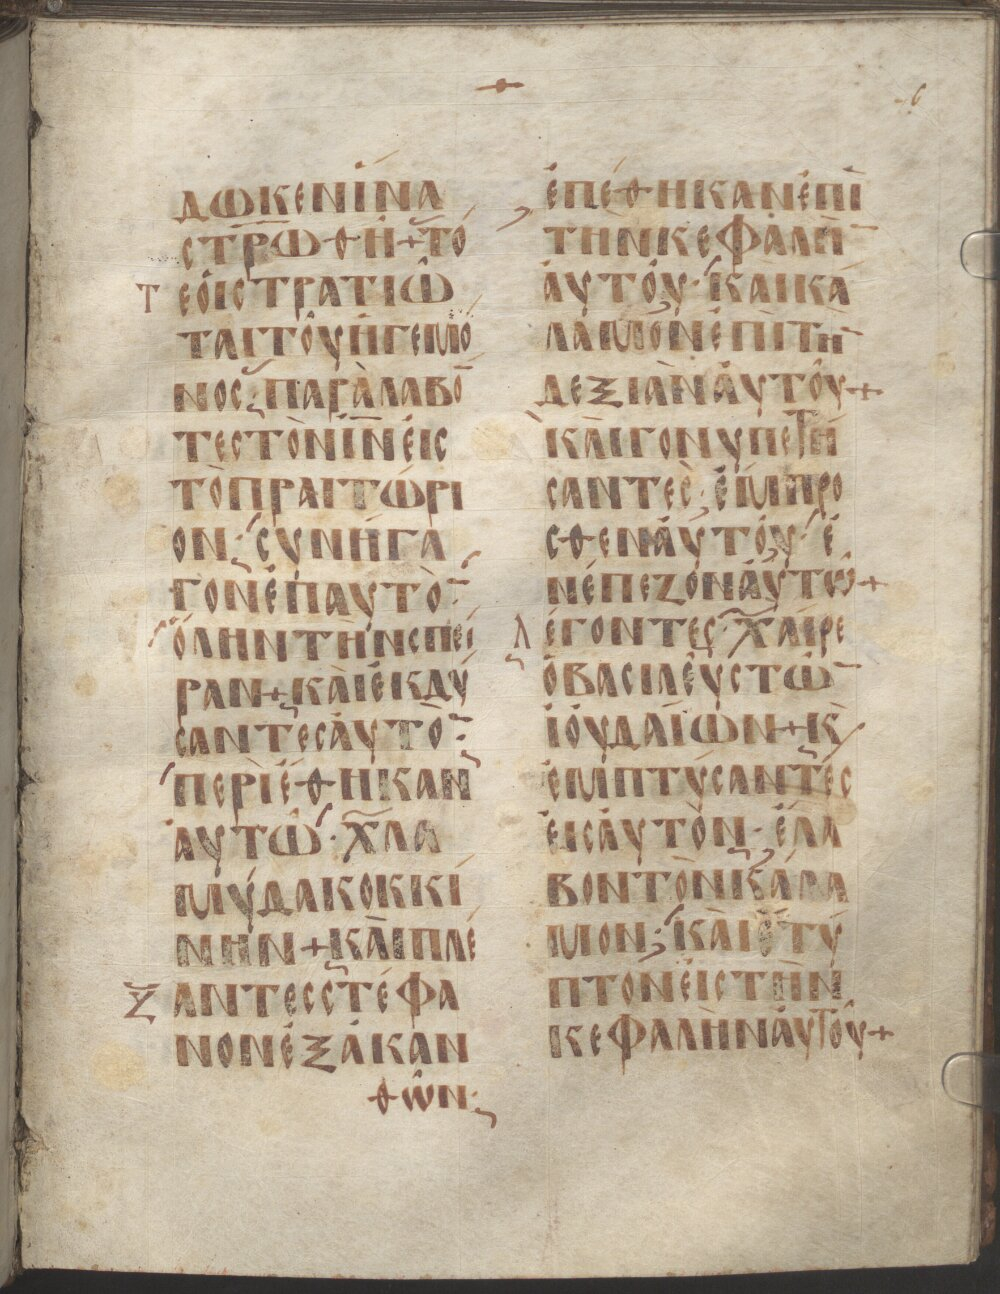 ς
ΔΩΚΕΝΙΝΑ
ΣΤΡ̅Ω̅ΘΗ+ΤΟ̅
ΤΕΟΙΣΤΡΑΤΙΩ
ΤΑΙΤΟΥΗΓΕΜΟ
ΝΟΣ·ΠΑΡΑΛΑΒΟ̅
ΤΕΣΤΟΝΙ̅Ν̅ΕΙΣ
ΤΟΠΡΑΙΤΩΡΙ
ΟΝ·ΣΥΝΗΓΑ
ΓΟΝΕΠΑΥΤΟ̅
ΟΛΗΝΤΗΝΣΠΕΙ
ΡΑΝ+ΚΑΙΕΚΔΥ
ΣΑΝΤΕΣΑΥΤΟ̅
ΠΕΡΙΕΘΗΚΑΝ
ΑΥΤΩ·ΧΛΑ
ΜΥΔΑΚΟΚΚΙ
ΝΗΝ+ΚΑΙΠΛΕ
ΞΑΝΤΕΣΣΤΕΦΑ
ΝΟΝΕΞΑΚΑΝ
ΘΩΝ·
ΕΠΕΘΗΚΑΝΕΠΙ
ΤΗΝΚΕΦΑΛΗ̅
ΑΥΤΟΥ·ΚΑΙΚΑ
ΛΑΜΟΝΕΠΙΤΗ̅
ΔΕΞΙΑΝΑΥΤΟΥ+
ΚΑΙΓΟΝΥΠΕΤΗ
ΣΑΝΤΕΣ·ΕΜΠΡΟ
ΣΘΕΝΑΥΤΟΥ·Ε
ΝΕΠΕΖΟΝΑΥΤΩ+
ΛΕΓΟΝΤΕΣ·ΧΑΙΡΕ
ΟΒΑΣΙΛΕΥΣΤΩ̅
ΙΟΥΔΑΙΩΝ+Κ
ΕΜΠΤΥΣΑΝΤΕΣ
ΕΙΣΑΥΤΟΝ·ΕΛΑ
ΒΟΝΤΟΝΚΑΛΑ
ΜΟΝ·ΚΑΙΕΤΥ
ΠΤΟΝΕΙΣΤΗΝ
ΚΕΦΑΛΗΝΑΥΤΟΥ+